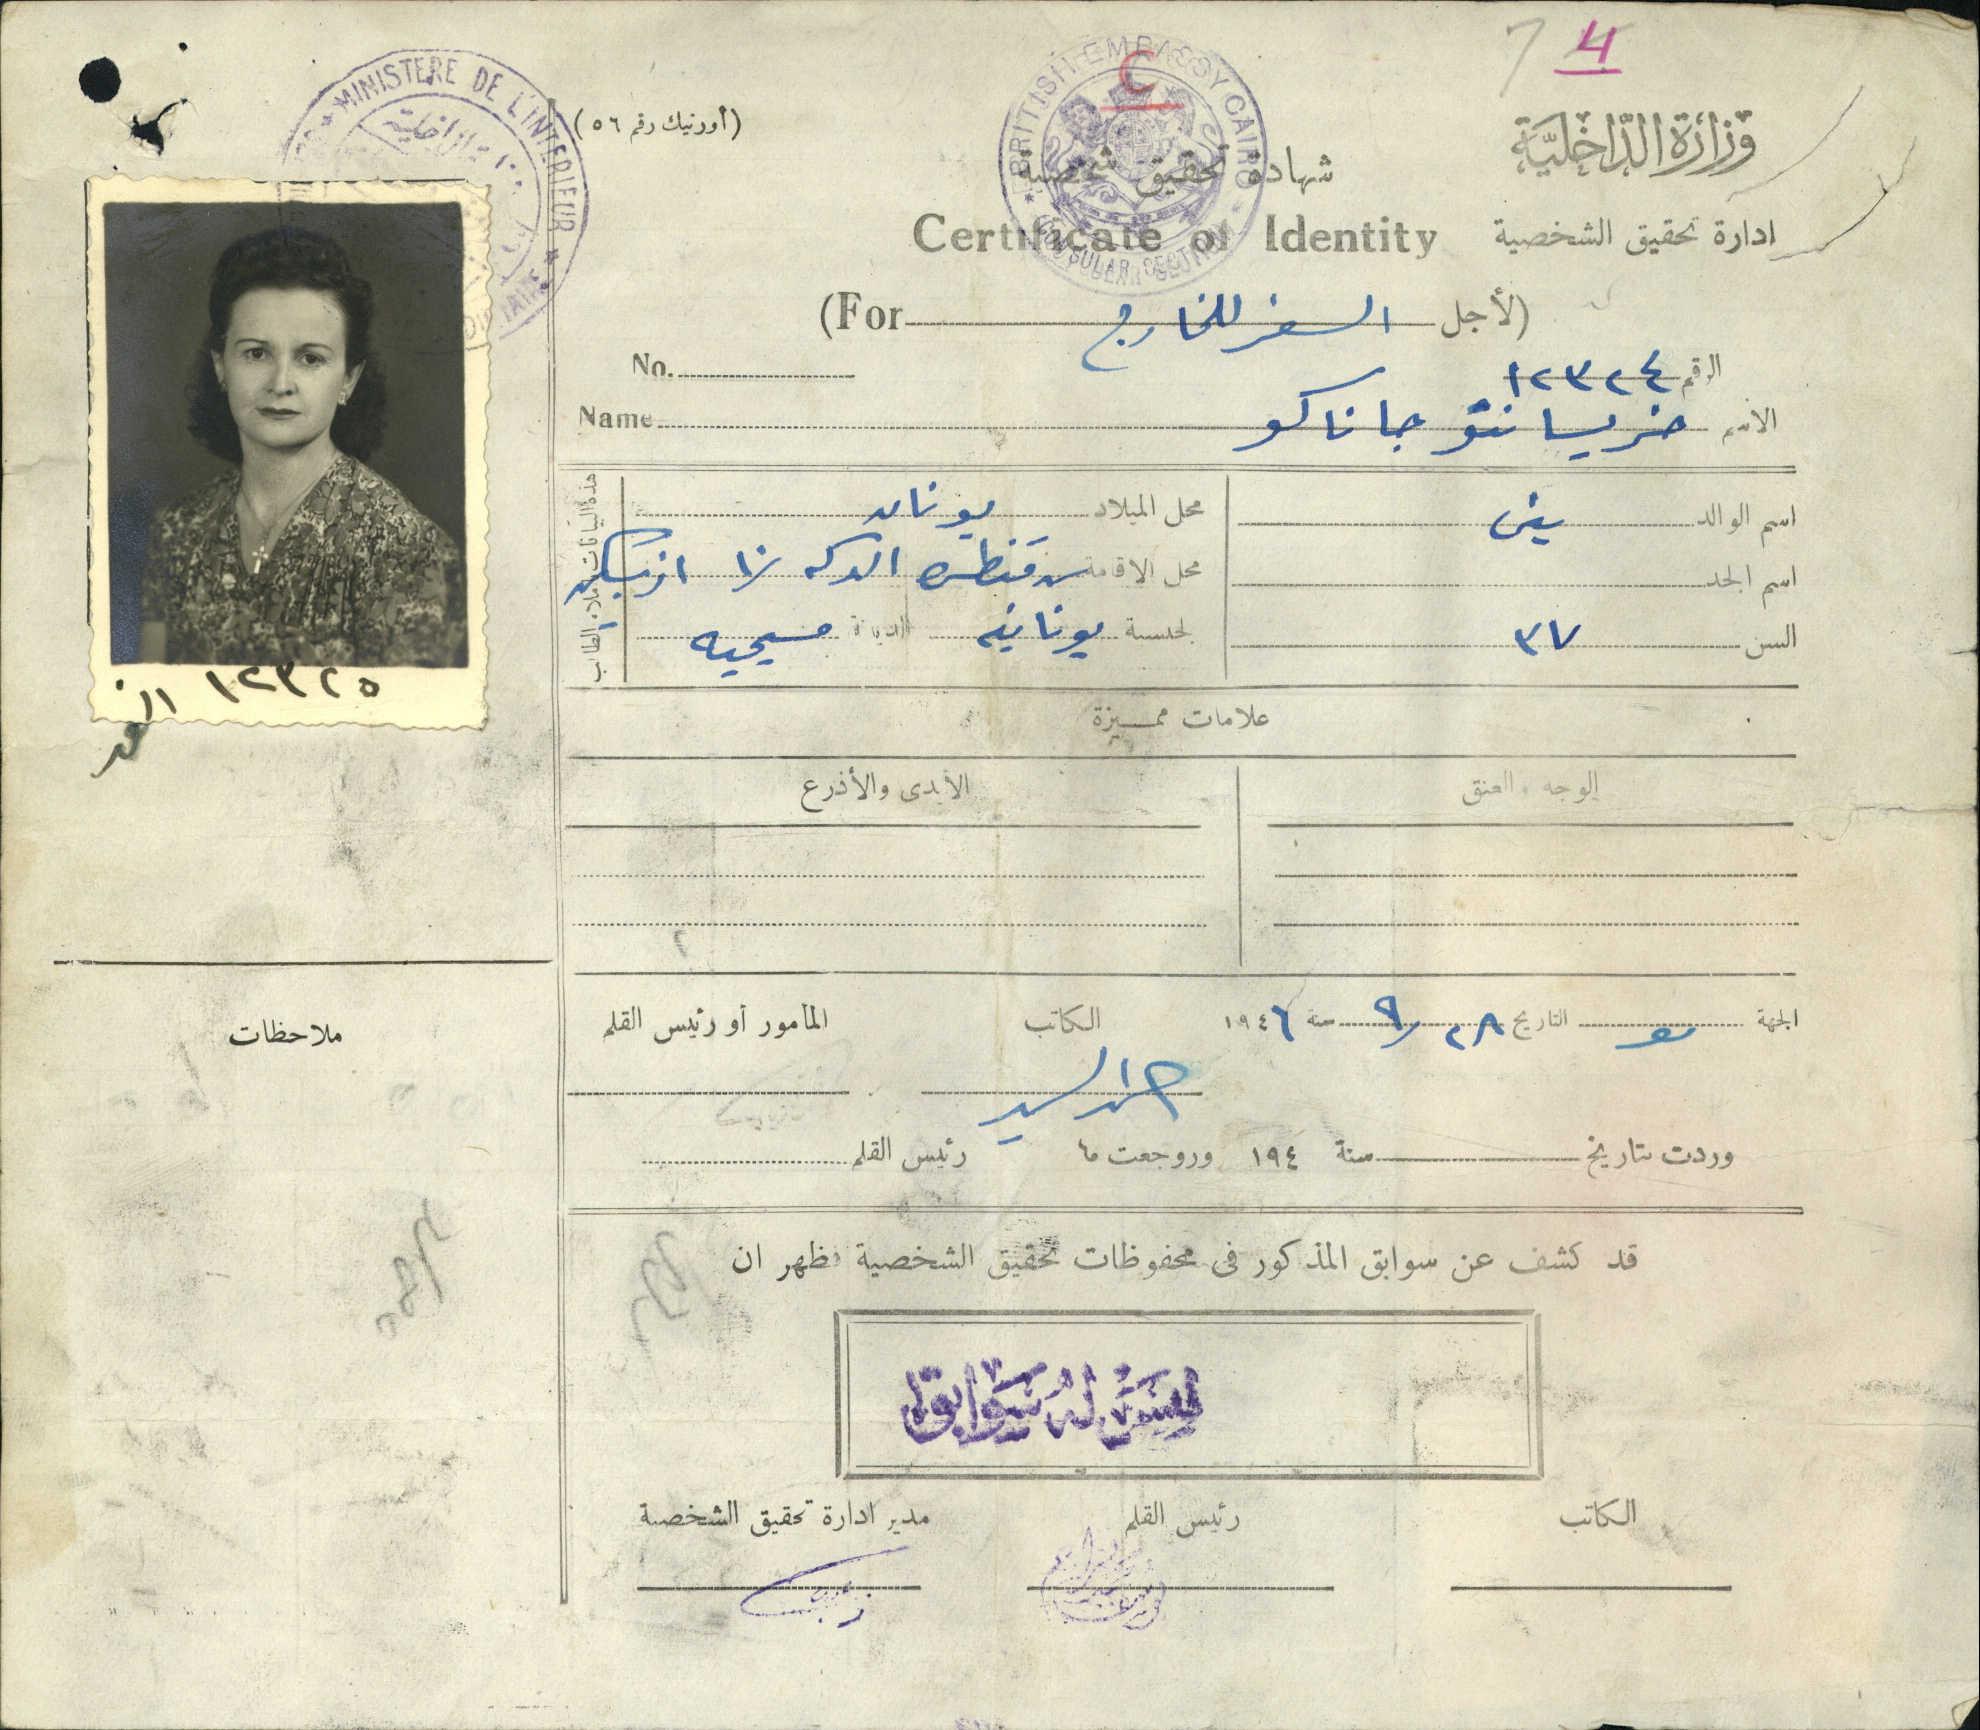 7 4
C
وزارة الداخلية
ادارة تحقيق الشخصية
(أورنيك رقم ٥٦)
MINISTERE DE L'INTERIEUR
BRITISH EMBASSY CAIRO
CONSULAR SECTION
شهادة تحقيق شخصية
Certificate of Identity
(For السفر للخارج لأجل)
No. الرقم ١٢٣٢٤
Name الاسم خريسانتو جاناكو
اسم الوالد ينى محل الميلاد يونان
اسم الجد محل الاقامة قنطرة الدكه ازبكيه
السن ٣٧ الجنسية يونانيه الديانة مسيحيه
هذه البيانات يملاها الطالب
١٢٣٢٥
علامات مميزة
الوجه والعنق الأيدى والأذرع
ملاحظات
الجهة التاريخ ٢٨/٩ سنة ١٩٤٦ الكاتب المأمور أو رئيس القلم
السيد
وردت بتاريخ سنة ١٩٤ وروجعت ما رئيس القلم
قد كشف عن سوابق المذكور فى محفوظات تحقيق الشخصية فظهر ان
ليس له سوابق
الكاتب رئيس القلم مدير ادارة تحقيق الشخصية